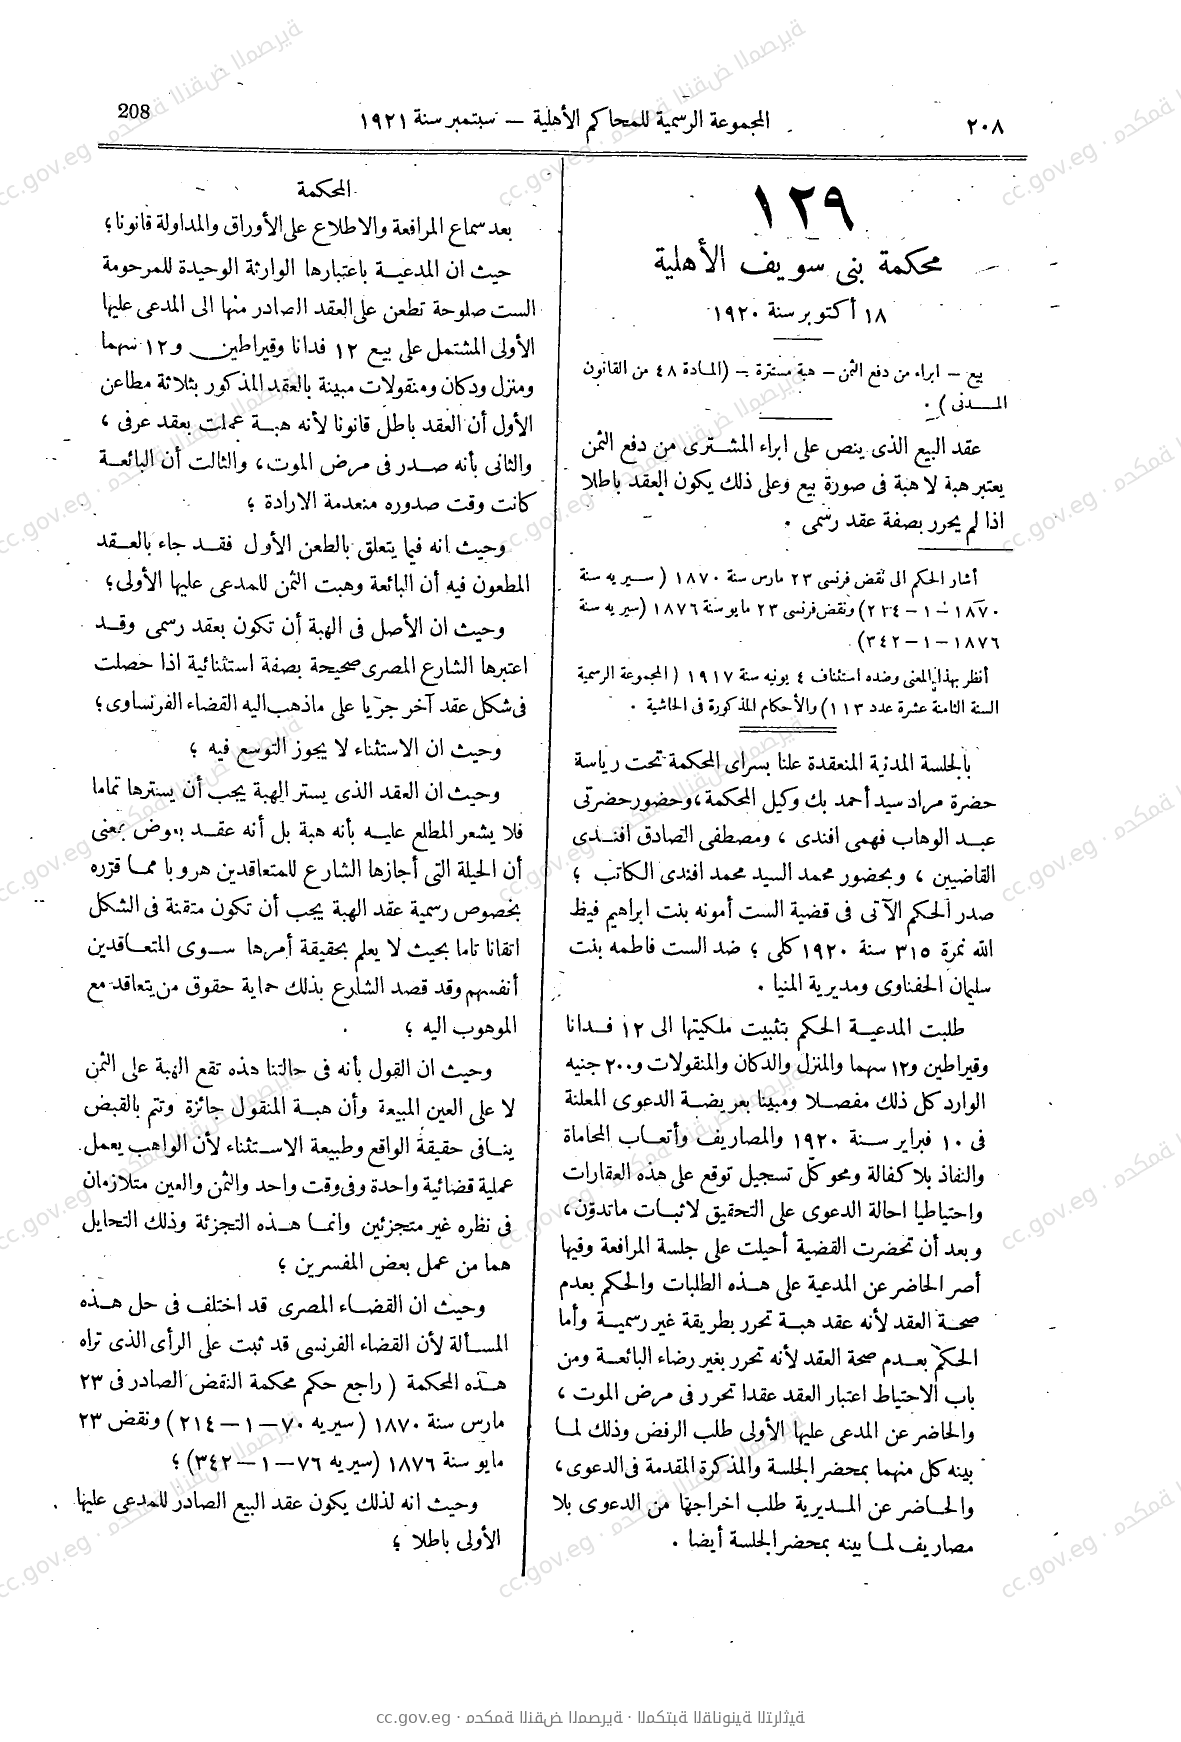 ٢٠٨
المجموعة الرسمية للمحاكم الأهلية — سبتمبر سنة ١٩٢١
208
١٢٩
محكمة بنى سويف الأهلية
١٨ أكتوبر سنة ١٩٢٠
بيع – ابراء من دفع الثمن – هبة مستترة – (المادة ٤٨ من القانون
المـدنى) ٠
عقد البيع الذى ينص على ابراء المشترى من دفع الثمن
يعتبر هبة لا هبة فى صورة بيع وعلى ذلك يكون العقد باطلا
اذا لم يحرر بصفة عقد رسمى ٠
أشار الحكم الى نقض فرنسى ٢٣ مارس سنة ١٨٧٠ (سيريه سنة
١٨٧٠ – ١ – ٢١٤) ونقض فرنسى ٢٣ مايو سنة ١٨٧٦ (سيريه سنة
١٨٧٦ – ١ – ٣٤٢) ٠
أنظر بهذا المعنى وضده استئناف ٤ يونيه سنة ١٩١٧ (المجموعة الرسمية
السنة الثامنة عشرة عدد ١١٣) والأحكام المذكورة فى الحاشية ٠
بالجلسة المدنية المنعقدة علنا بسراى المحكمة تحت رياسة
حضرة مراد سيد أحمد بك وكيل المحكمة، وحضور حضرتى
عبد الوهاب فهمى افندى ، ومصطفى الصادق افندى
القاضيين ، وبحضور محمد السيد محمد افندى الكاتب ؛
صدر الحكم الآتى فى قضية الست أمونه بنت ابراهيم فيظ
الله نمرة ٣١٥ سنة ١٩٢٠ كلى ؛ ضد الست فاطمه بنت
سليمان الحفناوى ومديرية المنيا ٠
طلبت المدعية الحكم بتثبيت ملكيتها الى ١٢ فدانا
وقيراطين و١٢ سهما والمنزل والدكان والمنقولات و٢٠٠ جنيه
الوارد كل ذلك مفصلا ومبينا بعريضة الدعوى المعلنة
فى ١٠ فبراير سنة ١٩٢٠ والمصاريف وأتعاب المحاماة
والنفاذ بلا كفالة ومحو كل تسجيل توقع على هذه العقارات
واحتياطيا احالة الدعوى على التحقيق لاثبات ماتدوّن،
وبعد أن تحضرت القضية أحيلت على جلسة المرافعة وفيها
أصر الحاضر عن المدعية على هذه الطلبات والحكم بعدم
صحة العقد لأنه عقد هبة تحرر بطريقة غير رسمية وأما
الحكم بعدم صحة العقد لأنه تحرر بغير رضاء البائعة ومن
باب الاحتياط اعتبار العقد عقدا تحرر فى مرض الموت ،
والحاضر عن المدعى عليها الأولى طلب الرفض وذلك لما
بينه كل منهما بمحضر الجلسة والمذكرة المقدمة فى الدعوى،
والحاضر عن المديرية طلب اخراجها من الدعوى بلا
مصاريف لما بينه بمحضر الجلسة أيضا ٠
المحكمة
بعد سماع المرافعة والاطلاع على الأوراق والمداولة قانونا ؛
حيث ان المدعية باعتبارها الوارثة الوحيدة للمرحومة
الست صلوحة تطعن على العقد الصادر منها الى المدعى عليها
الأولى المشتمل على بيع ١٢ فدانا وقيراطين و١٢ سهما
ومنزل ودكان ومنقولات مبينة بالعقد المذكور بثلاثة مطاعن
الأول أن العقد باطل قانونا لأنه هبة عملت بعقد عرفى ،
والثانى بأنه صدر فى مرض الموت، والثالت أن البائعة
كانت وقت صدوره منعدمة الارادة ؛
وحيث انه فيما يتعلق بالطعن الأول فقد جاء بالعقد
المطعون فيه أن البائعة وهبت الثمن للمدعى عليها الأولى؛
وحيث ان الأصل فى الهبة أن تكون بعقد رسمى وقد
اعتبرها الشارع المصرى صحيحة بصفة استثنائية اذا حصلت
فى شكل عقد آخر جريا على ماذهب اليه القضاء الفرنساوى؛
وحيث ان الاستثناء لا يجوز التوسع فيه ؛
وحيث ان العقد الذى يستر الهبة يجب أن يسترها تماما
فلا يشعر المطلع عليه بأنه هبة بل أنه عقد بعوض بمعنى
أن الحيلة التى أجازها الشارع للمتعاقدين هروبا مما قرّره
بخصوص رسمية عقد الهبة يجب أن تكون متقنة فى الشكل
اتقانا تاما بحيث لا يعلم بحقيقة أمرها سوى المتعاقدين
أنفسهم وقد قصد الشارع بذلك حماية حقوق من يتعاقد مع
الموهوب اليه ؛
وحيث ان القول بأنه فى حالتنا هذه تقع الهبة على الثمن
لا على العين المبيعة وأن هبة المنقول جائزة وتتم بالقبض
ينافى حقيقة الواقع وطبيعة الاستثناء لأن الواهب يعمل
عملية قضائية واحدة وفى وقت واحد والثمن والعين متلازمان
فى نظره غير متجزئين وانما هذه التجزئة وذلك التحايل
هما من عمل بعض المفسرين ؛
وحيث ان القضاء المصرى قد اختلف فى حل هذه
المسألة لأن القضاء الفرنسى قد ثبت على الرأى الذى تراه
هذه المحكمة (راجع حكم محكمة النقض الصادر فى ٢٣
مارس سنة ١٨٧٠ (سيريه ٧٠ – ١ – ٢١٤) ونقض ٢٣
مايو سنة ١٨٧٦ (سيريه ٧٦ – ١ – ٣٤٢) ؛
وحيث انه لذلك يكون عقد البيع الصادر للمدعى عليها
الأولى باطلا ؛
cc.gov.eg · محكمة النقض المصرية · المكتبة القانونية التراثية